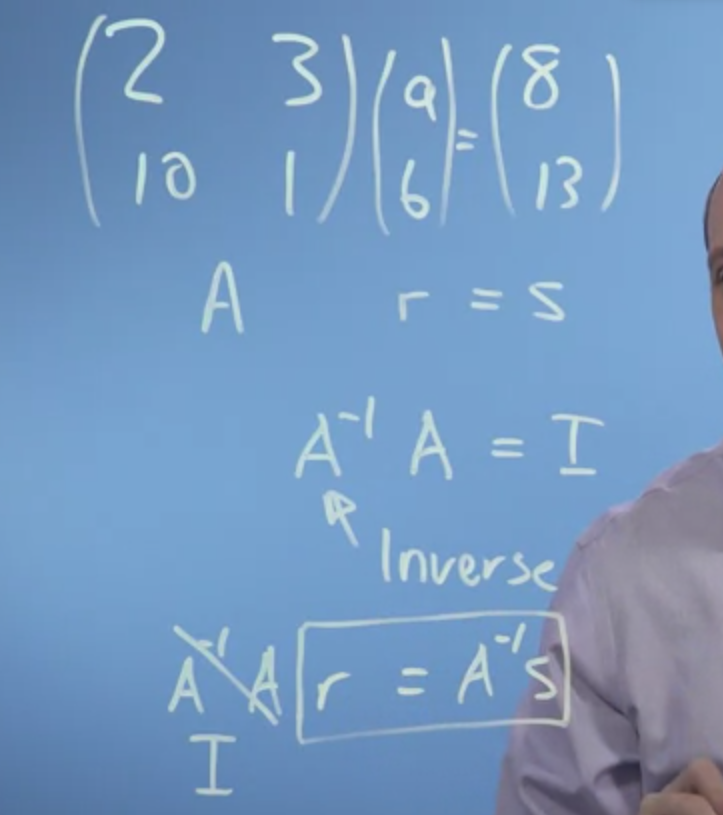 2 3 a = 8
10 1 b 13
A r = s
A⁻¹ A = I
Inverse
A⁻¹ A r = A⁻¹ s
I